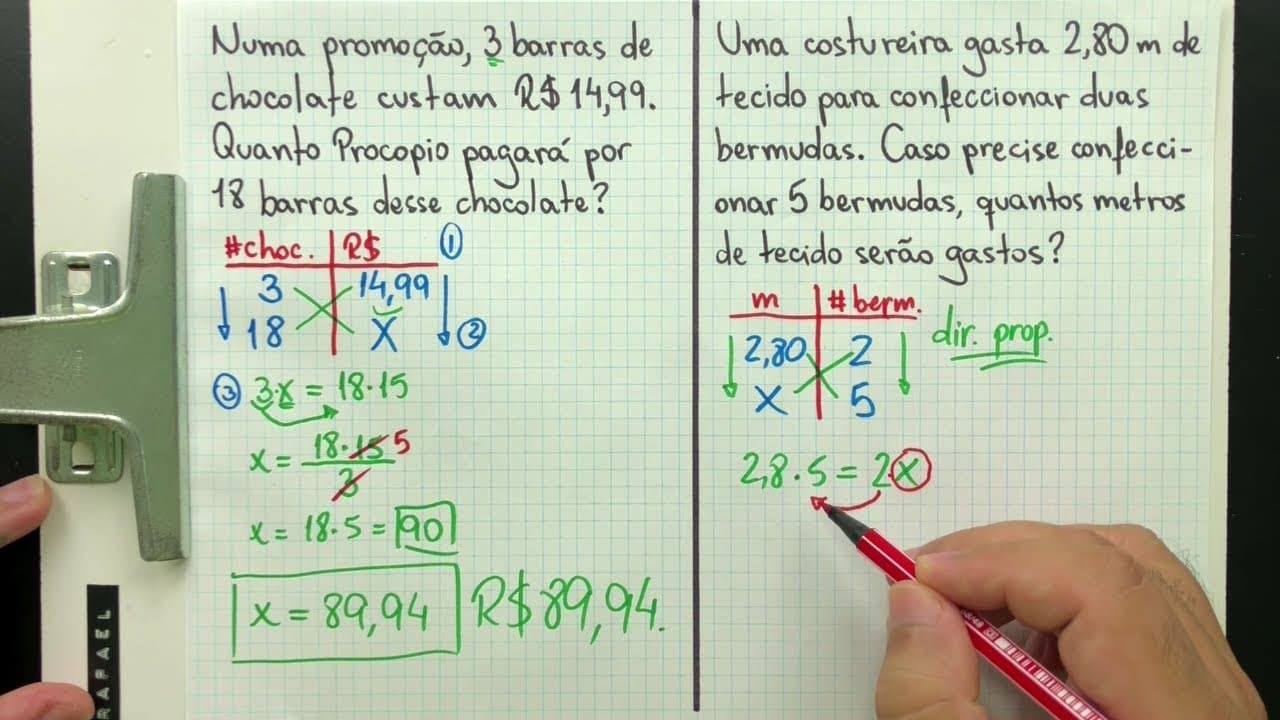 Numa promoção, 3 barras de
chocolate custam R$ 14,99.
Quanto Procopio pagará por
18 barras desse chocolate?
#choc. R$ 1
3 14,99
18 X 2
3 3·x = 18·15
x = 18·15 5
3
x = 18·5 = 90
x = 89,94 R$ 89,94.
Uma costureira gasta 2,80 m de
tecido para confeccionar duas
bermudas. Caso precise confecci-
onar 5 bermudas, quantos metros
de tecido serão gastos?
m # berm.
dir. prop.
2,80 2
X 5
2,8·5 = 2·x
RAFAEL